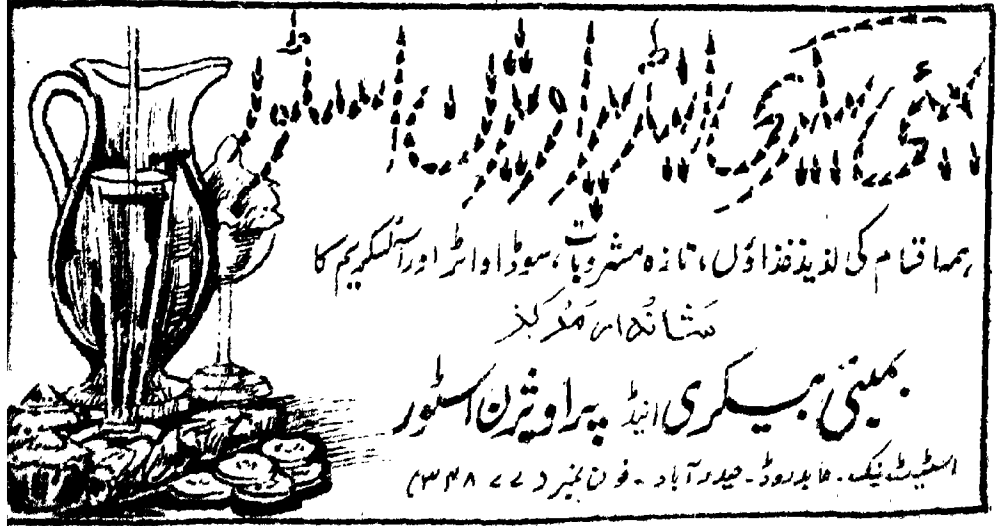 بمبئی بیکری اینڈ پراویژن اسٹور
ہمہ اقسام کی لذیذ غذاؤں، تازہ مشروبات، سوڈا واٹر اور آئسکریم کا
شاندار مرکز
بمبئی بیکری اینڈ پراویژن اسٹور
اسٹیٹ بنک۔ عابد روڈ۔ حیدرآباد۔ فون نمبر (۴۳۴۸۷۷)